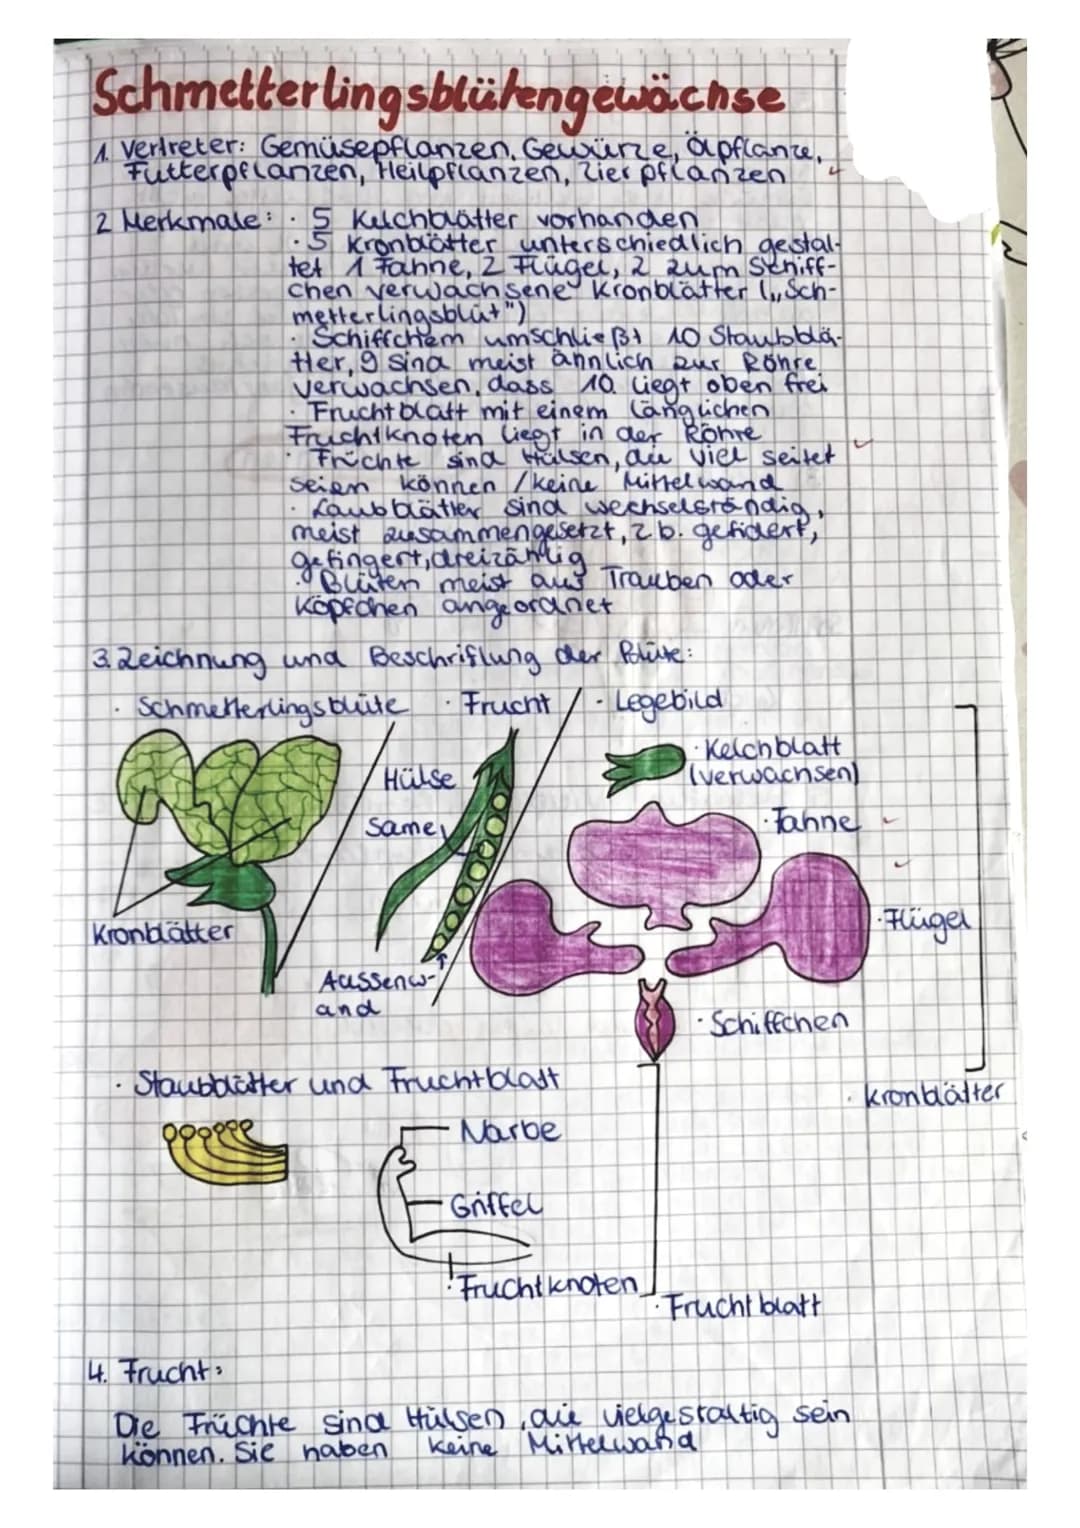 Schmetterlingsblütengewächse
1. Vertreter: Gemüsepflanzen, Gewürze, Ölpflanze,
Futterpflanzen, Heilpflanzen, Zierpflanzen
2 Merkmale: · 5 Kelchblätter vorhanden
· 5 Kronblätter unterschiedlich gestal-
tet 1 Fahne, 2 Flügel, 2 zum Schiff-
chen verwachsene Kronblätter („Sch-
metterlingsblüt")
· Schiffchem umschließt 10 Staubblä-
tter, 9 sind meist ähnlich zur Röhre
verwachsen, dass 10. liegt oben frei
· Fruchtblatt mit einem länglichen
Fruchtknoten liegt in der Röhre
· Früchte sind Hülsen, die viel seitet
seien können / keine Mittelwand
· Laubblätter sind wechselständig,
meist zusammengesetzt, z.b. gefidert,
gefingert, dreizählig
· Blüten meist aus Trauben oder
Köpfchen angeordnet
3. Zeichnung und Beschriftung der Blüte:
· Schmetterlingsblüte · Frucht / · Legebild
· Kelchblatt
(verwachsen)
Hülse
Same
· Fahne
Kronblätter
· Flügel
Aussenw-
and
· Schiffchen
· Staubblätter und Fruchtblatt
· Kronblätter
Narbe
Griffel
· Fruchtknoten
· Fruchtblatt
4. Frucht:
Die Früchte sind Hülsen, die vielgestaltig sein
können. Sie haben keine Mittelwand